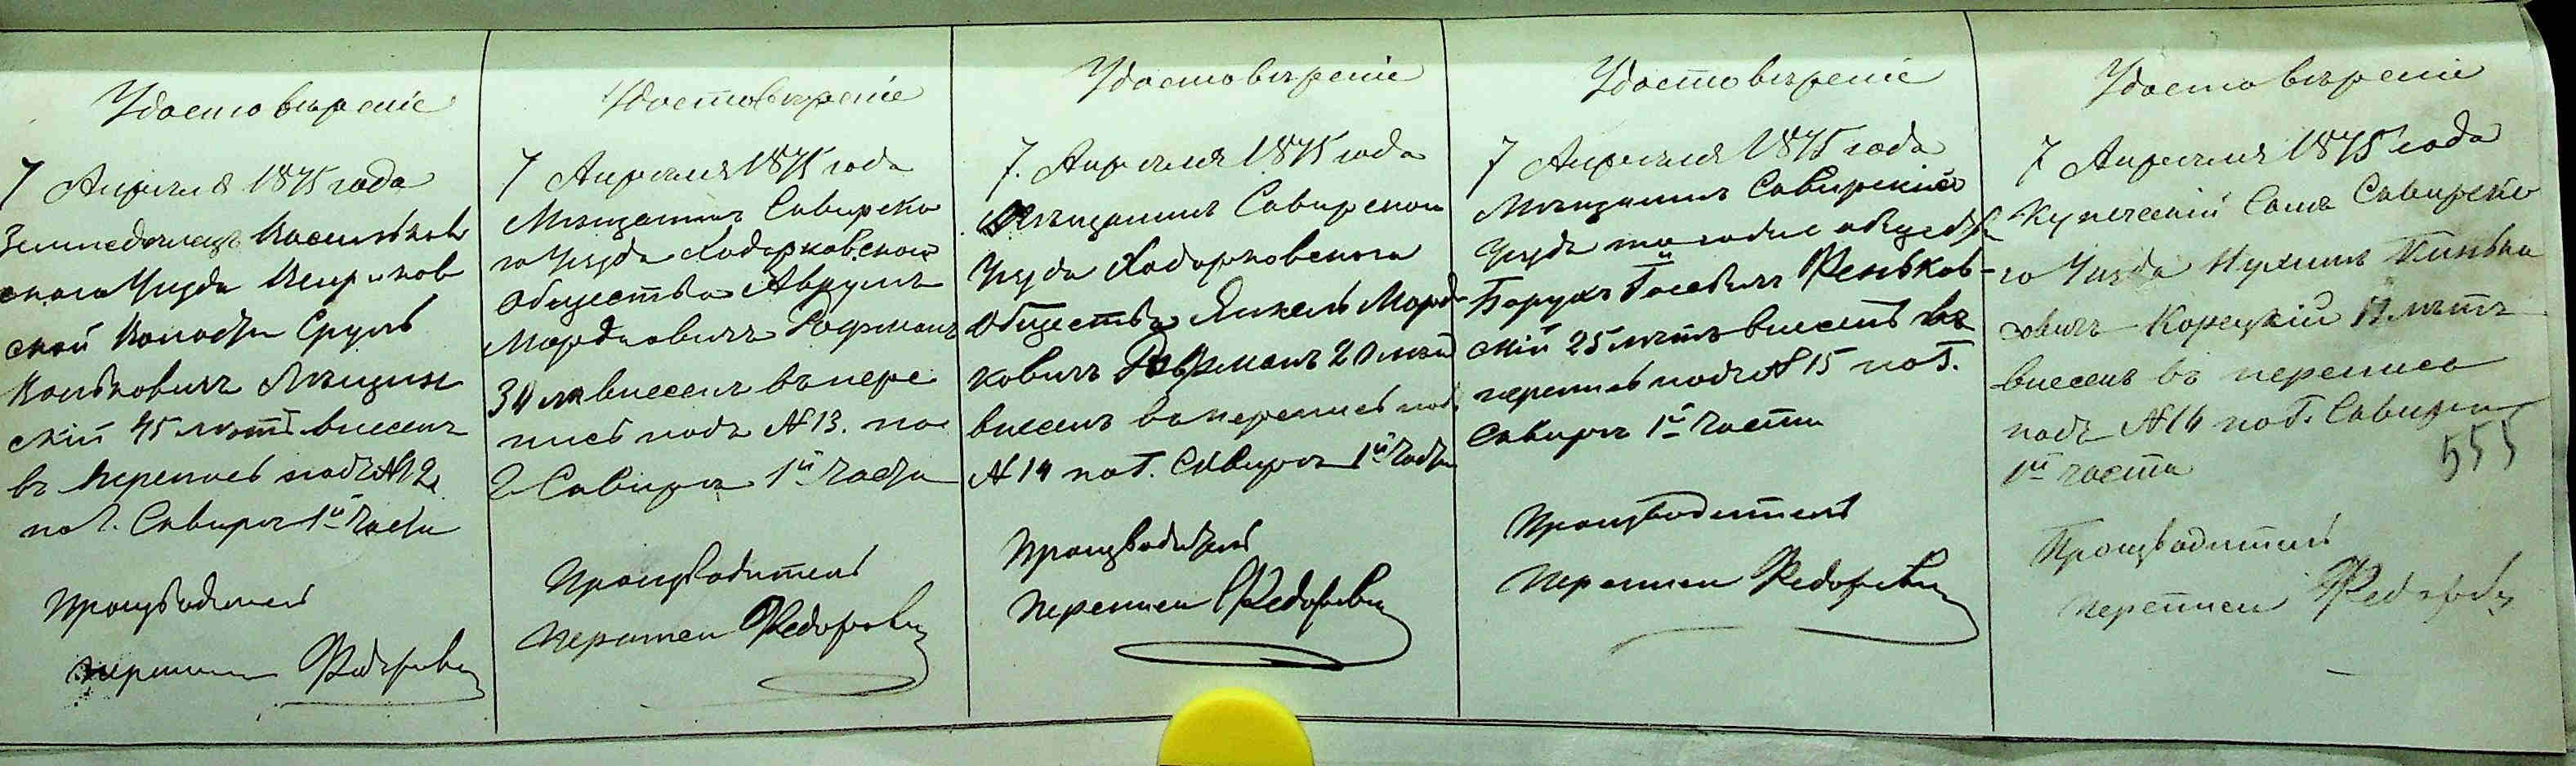 Удостовѣреніе
7 Апрѣля 1875 года
Земледѣлецъ Васильков
скаго Уѣзда
ской Волости Сруль
Вольковичъ
скій 45 лѣтъ внесенъ
въ перепись подъ №12,
по Г. Сквирѣ 1й части
Производитель
переписи Федоровичъ
Удостовѣреніе
7 Апрѣля 1875 года
Мѣщанинъ Сквирска
го Уѣзда Ходорковскаго
Общества Аврумъ
Мордковичъ Гофманъ
30 л внесенъ въ пере
пись подъ №13. по
Г Сквирѣ 1й части
Производитель
переписи Федоровичъ
Удостовѣреніе
7. Апрѣля 1875 года
Мѣщанинъ Сквирскаго
Уѣзда Ходорковскаго
Общества Янкель Морд
ковичъ Гофманъ 20 лѣтъ
внесенъ въ перепись подъ
№14 по Г. Сквирѣ 1й части
Производитель
переписи Федоровичъ
Удостовѣреніе
7 Апрѣля 1875 года
Мѣщанинъ Сквирскаго
Уѣзда того же общества
Борухъ Іосевичъ Феньков-
скій 25 лѣтъ внесенъ въ
перепись подъ №15 по Г.
Сквирѣ 1й части
Производитель
переписи Федоровичъ
Удостовѣреніе
7 Апрѣля 1875 года
Купеческій Сынъ Сквирска
го Уѣзда Нухимъ
совичъ Корецкій лѣтъ
внесенъ въ перепись
подъ №16 по Г. Сквирѣ
1й части
555
Производитель
переписи Федоровичъ